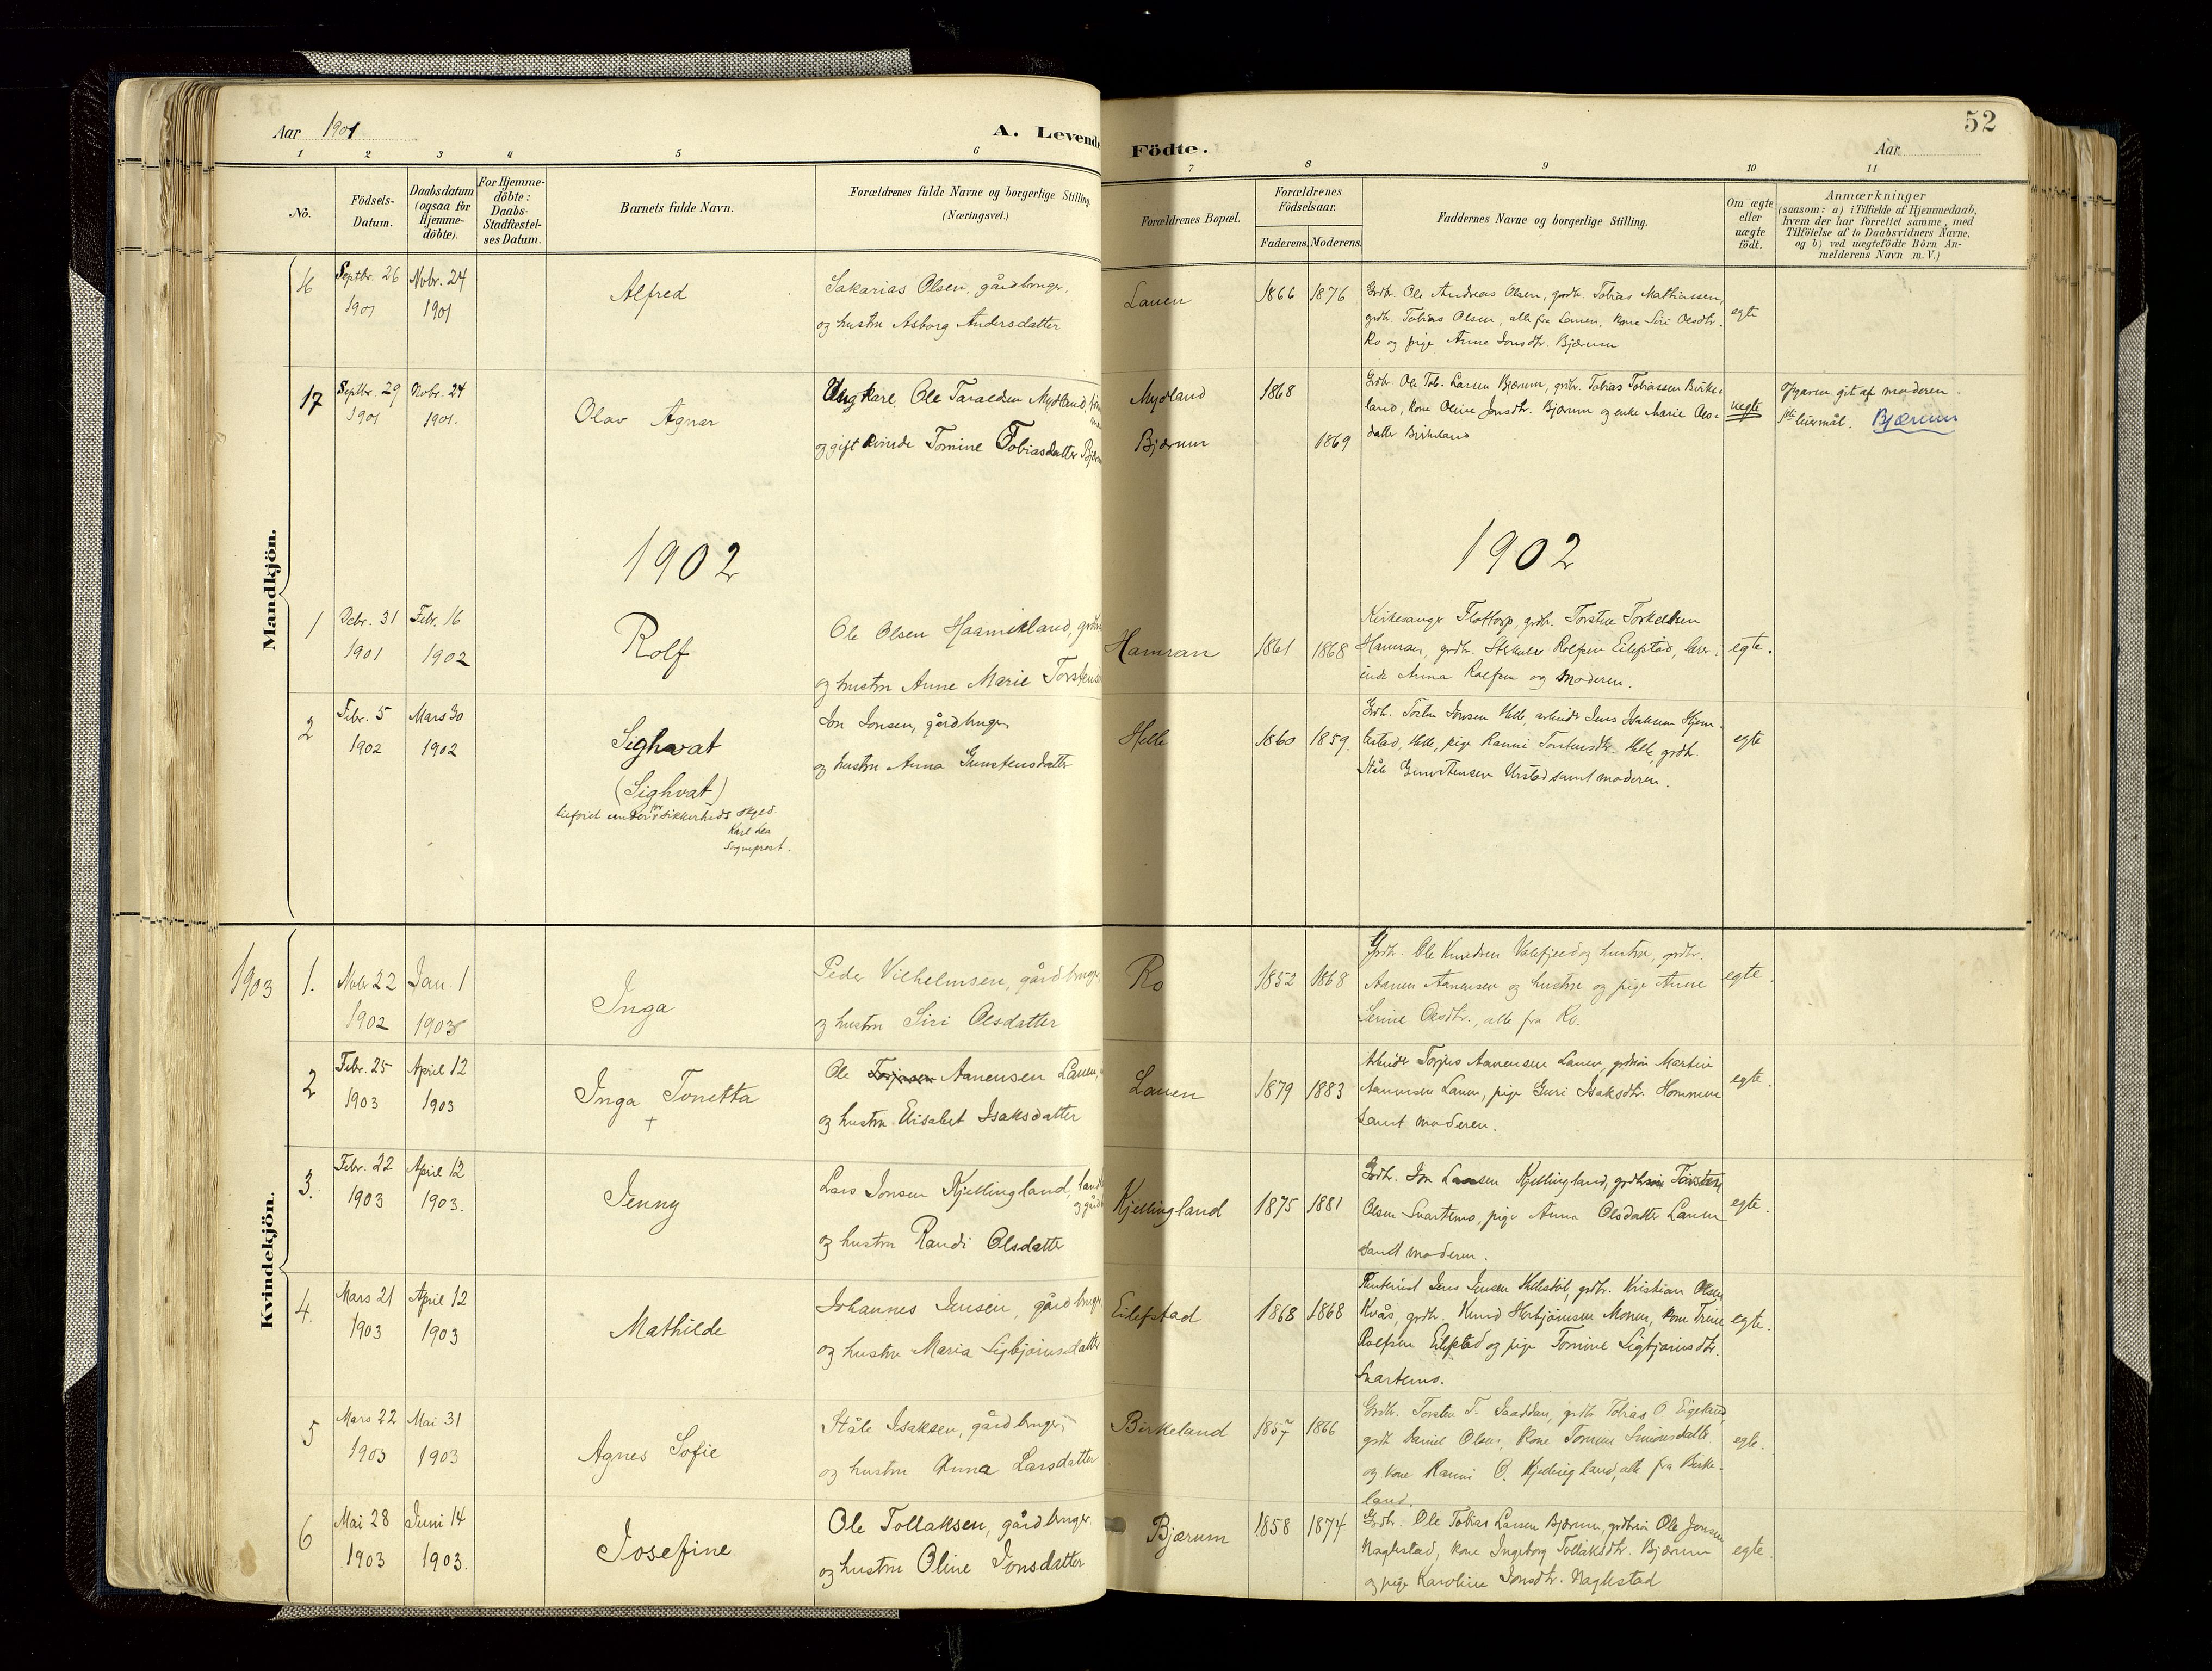 52
Aar 1901
A. Levende
Födte.
Aar
1 2 3 4 5 6 7 8 9 10 11
No.
Födsels-Datum.
Daabsdatum (ogsaa for Hjemme-döbte).
For Hjemme-döbte: Daabs-Stadfæstel-ses Datum.
Barnets fulde Navn.
Forældrenes fulde Navne og borgerlige Stilling
(Næringsvei.)
Forældrenes Bopæl.
Forældrenes Födselsaar.
Faderens. Moderens.
Faddernes Navne og borgerlige Stilling.
Om ægte eller uægte födt.
Anmærkninger
(saasom: a) i Tilfælde af Hjemmedaab,
hvem der har forrettet samme, med
Tilföielse af to Daabsvidners Navne,
og b) ved uægtefödte Börn An-
melderens Navn m. V.)
Mandkjön.
16 Septbr. 26 1901 Novbr. 24 1901
Alfred
Sakarias Olsen, gårdbruger,
og hustru Asborg Andersdatter
Lauen 1866 1876
Grdbr. Ole Andreas Olsen, grdbr. Tobias Mathiassen,
grdbr. Tobias Olsen, alle fra Lauen, kone Siri Olsdtr.
Ro og pige Anne Jonsdtr. Bjærum
egte
17 Septbr. 29 1901 Novbr. 24 1901.
Olav Agnar
Ungkarl Ole Taraldsen Mydland,
og gift kvinde Tomine Tobiasdatter
Mydland 1868
Bjærum 1869
Grdbr. Ole Tob. Larsen Bjærum, grdbr. Tobias Tobiassen Birke-
land, kone Oline Jonsdtr. Bjærum og enke Marie Ols-
datter Birkeland
uegte
Opgaven git af moderen.
leiermål. Bjærum
1902
1902
1 Debr. 31 1901 Febr. 16 1902
Rolf
Ole Olsen Haamikland,
og hustru Anne Marie
Hamran 1861 1868
Kirkesanger Flottorp, grdbr. Torstein Torkelsen
Hamran, grdbr. Rolfsen Eilefstad, lærer-
inde Anna Rolfsen og moderen.
egte.
2 Febr. 5 1902 Mars 30 1902
Sighvat
(Sighvat)
for sikkerheds skyld.
Karl
Sogneprest.
Jon Jonsen, gårdbruger
og hustru Anna Gunstensdatter
Helle 1860 1859.
Grdb. Jonsen Helle, arbeider Jens Isaksen Hjem-
lestad, Helle, pige Ranni Torstensdtr. Helle, grdb.
Ståle Gunstensen Urstad samt moderen.
egte
Kvindekjön.
1903
1. Novbr 22 1902 Jan. 1 1903
Inga
Peder Vilhelmsen, gårdbruger
og hustru Siri Olsdatter
Ro 1852 1868
Grdbr. Ole Knudsen og hustru, grdbr.
Aanen Aanensen og hustru og pige Anne
Serine Olsdtr., alle fra Ro.
egte.
2 Febr. 25 1903 April 12 1903
Inga Tonetta
+
Ole Torjusen Aanensen Lauen,
og hustru Elisabet Isaksdatter
Lauen 1879 1883
Arbeider Torjus Aanensen Lauen, grdbrsön Martin
Aanensen Lauen, pige Guri Isaksdtr. Hommen
samt moderen.
egte.
3. Febr. 22 1903 April 12 1903.
Jenny
Lars Jonsen Kjellingland,
og hustru Randi Olsdatter
Kjellingland 1875 1881
Grdbr. Jon Larsen Kjellingland, grdbrsön Torsten
Olsen Svartemo, pige Anna Olsdatter Lauen
samt moderen.
egte.
4. Mars 21 1903 April 12 1903
Mathilde
Johannes Jensen, gårdbruger
og hustru Maria Sigbjørnsdatter
Eilefstad 1868 1868
Jens Jensen, grdbr. Kristian Olsen
Kvås, grdbr. Knud Herbjörnsen Monen, kone Trine
Rolfsen Eilefstad og pige Tomine Sigbjørnsdtr.
Svartemo.
egte.
5 Mars 22 1903 Mai 31 1903
Agnes Sofie
Ståle Isaksen, gårdbruger,
og hustru Anna Larsdatter
Birkeland 1857 1866
Grdbr. Torsten T. Saaddan, grdbr Tobias O. Eigeland,
grdbr. Daniel Olsen, kone Tomine Simonsdatter
og kone Ranni O. Kjellingland, alle fra Birke-
land.
egte.
6 Mai 28 1903 Juni 14 1903.
Josefine
Ole Tollaksen, gårdbruger
og hustru Oline Jonsdatter
Bjærum 1858 1874
Grdbr. Ole Tobias Larsen Bjærum, grdbrsön Ole Jonsen
Naglestad, kone Ingeborg Tollaksdtr. Bjærum
og pige Karoline Jonsdtr. Naglestad
egte.